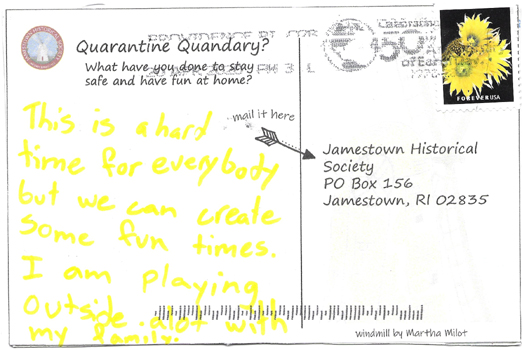 PROVIDENCE RI
Quarantine Quandary?
What have you done to stay
safe and have fun at home?
mail it here
This is a hard
time for everybody
but we can create
some fun times.
I am playing
outside alot with
my family.
FOREVER USA
Jamestown Historical
Society
PO Box 156
Jamestown, RI 02835
windmill by Martha Milot